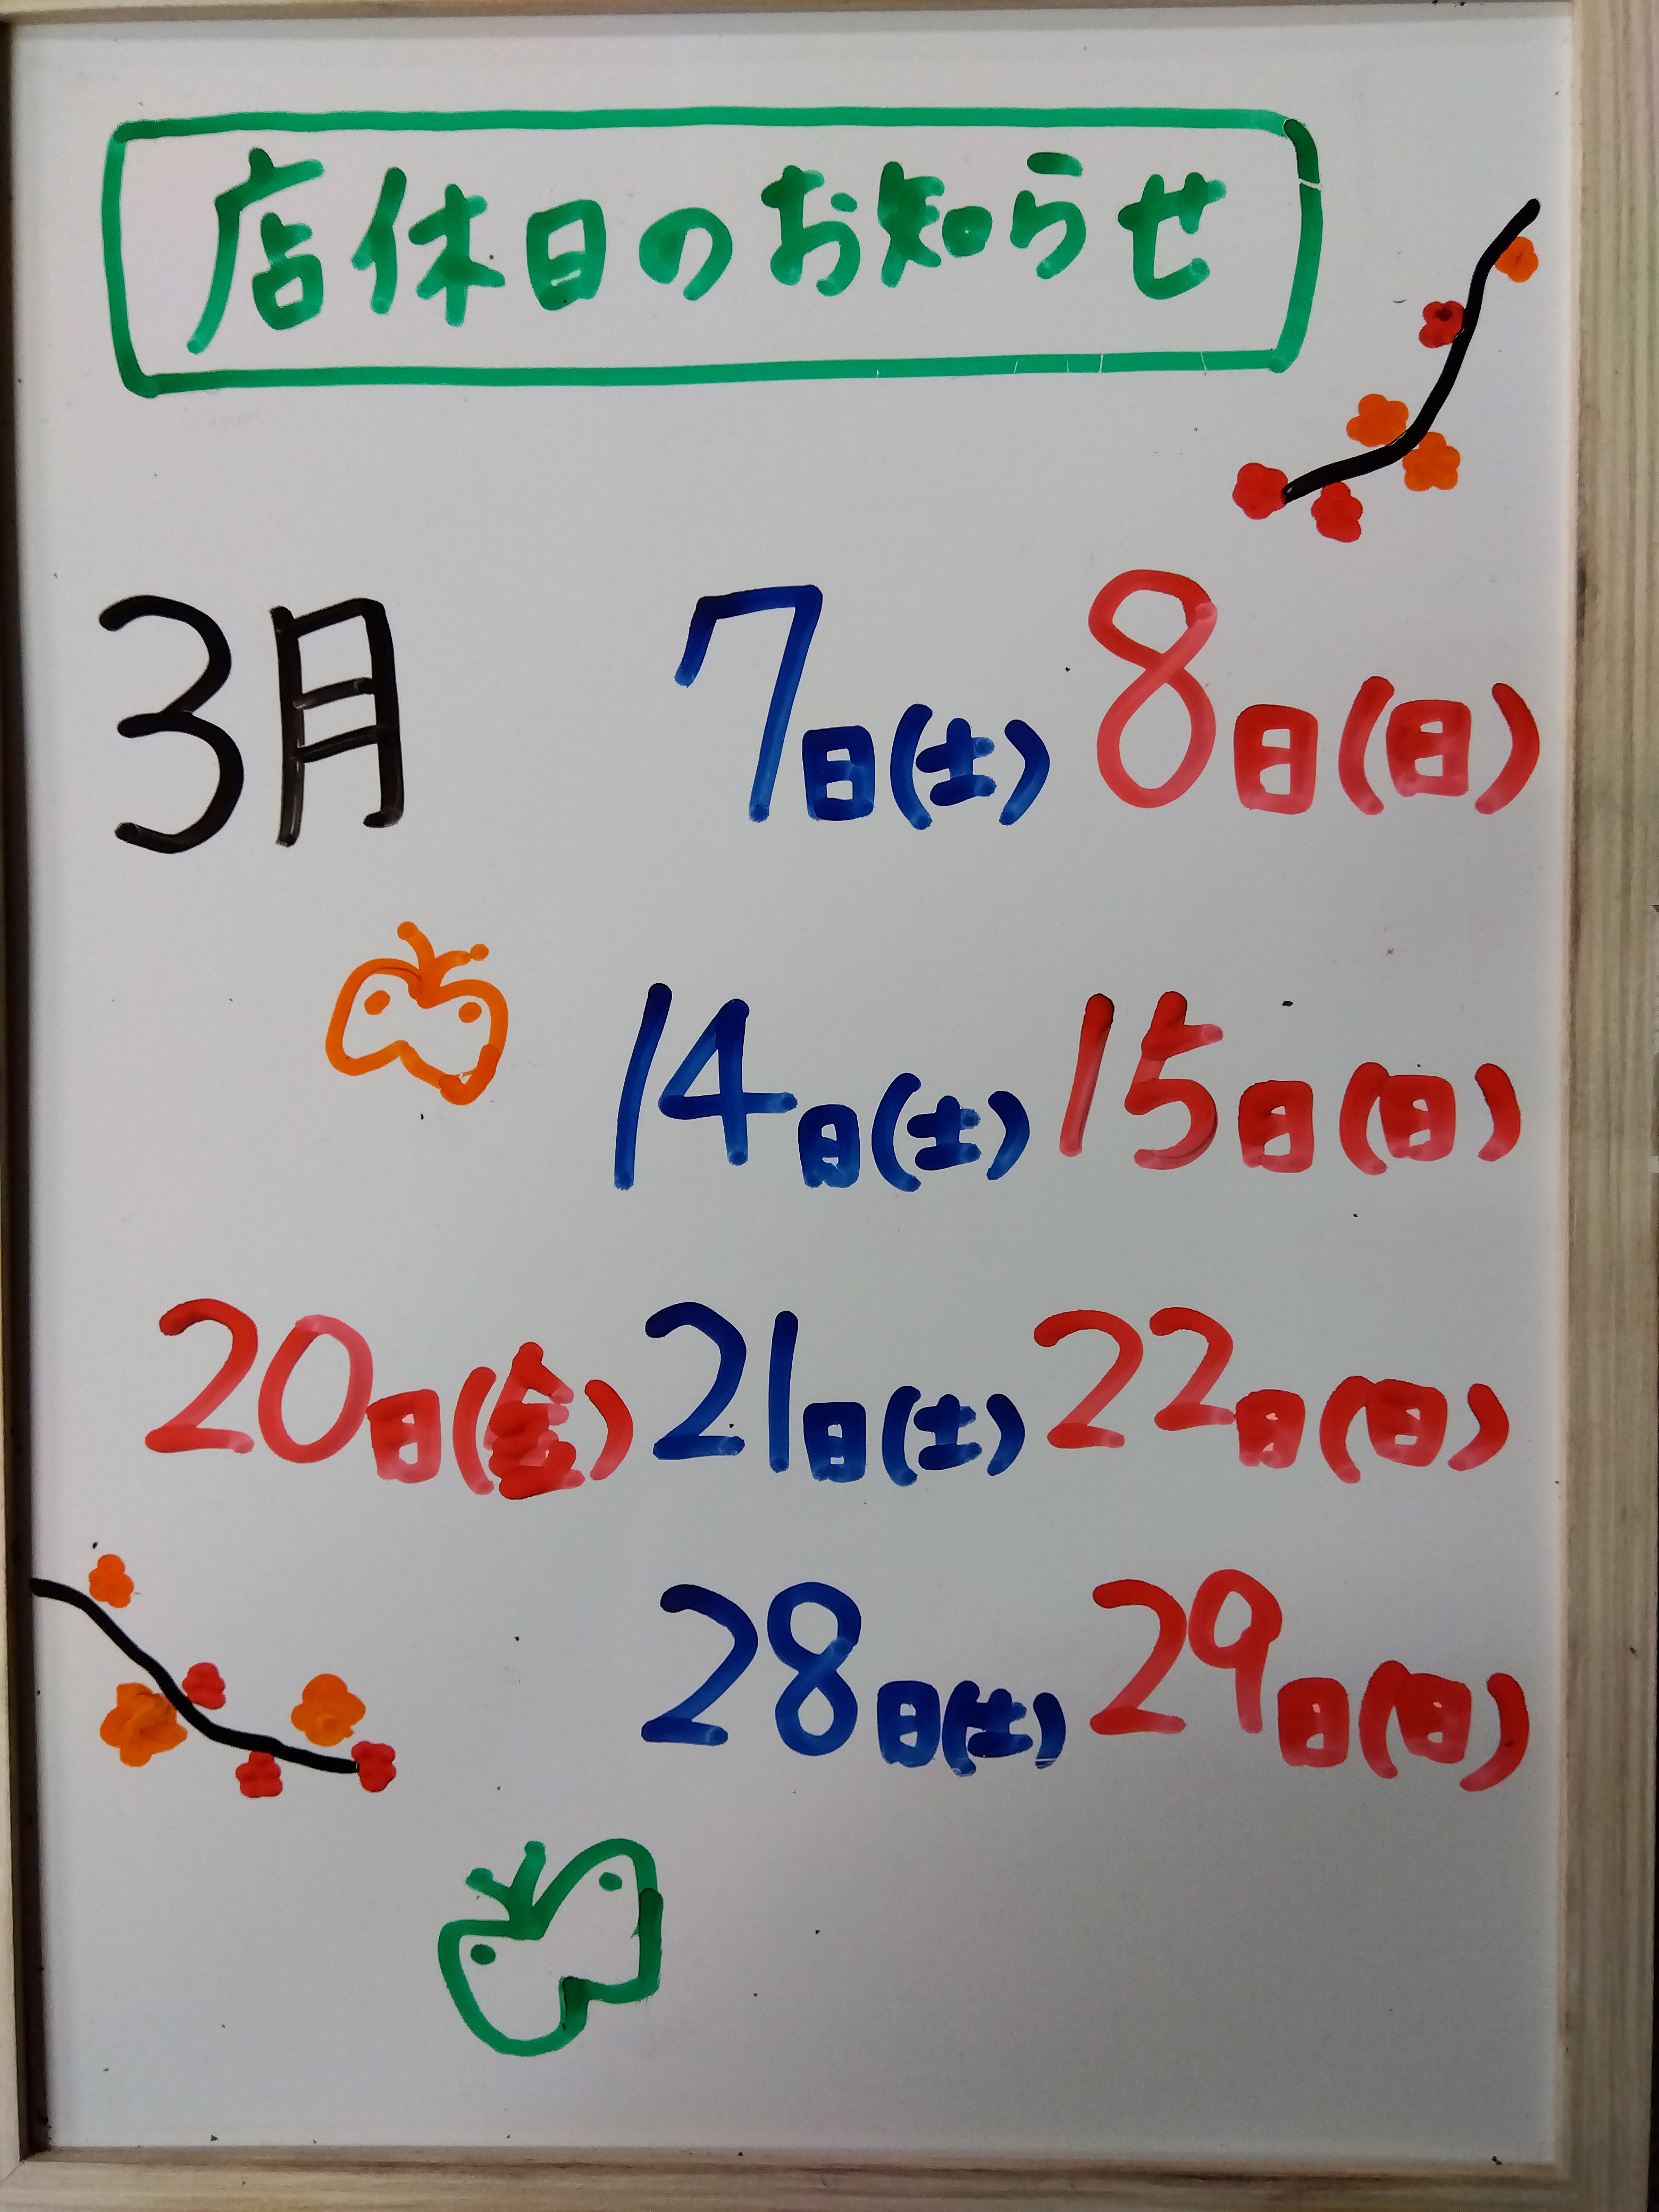 店休日のお知らせ
3月 7日(土) 8日(日)
14日(土) 15日(日)
20日(金) 21日(土) 22日(日)
28日(土) 29日(日)